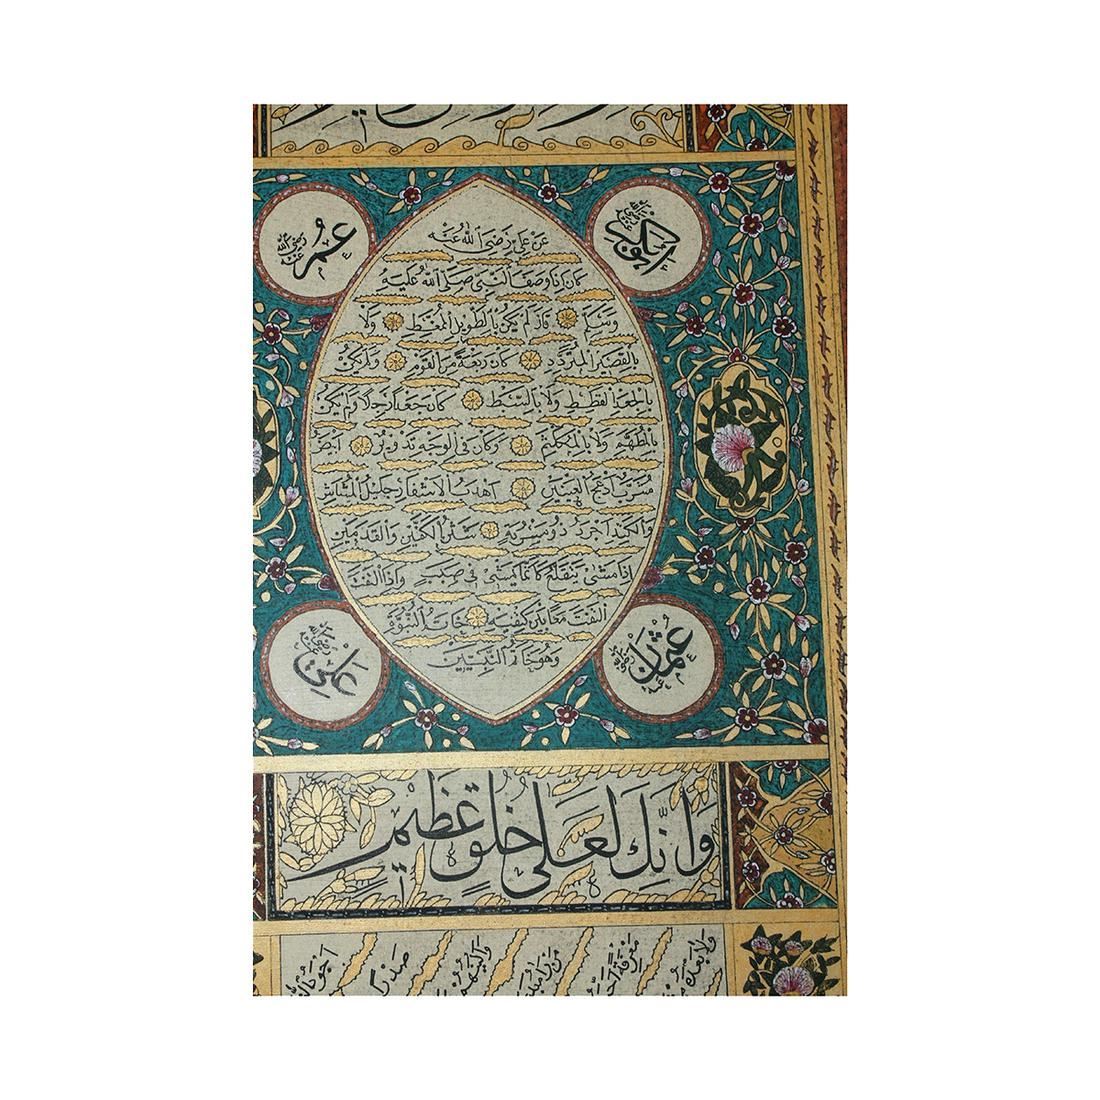 ابوبكر رضى الله عنه
عمر رضى الله عنه
عن على رضى الله عنه
كان اذا وصف النبى صلى الله عليه
وسلم قال لم يكن بالطويل الممغط ولا
بالقصير المتردد كان ربعة من القوم ولم يكن
بالجعد القطط ولا بالسبط كان جعدا رجلا ولم يكن
بالمطهم ولا بالمكلثم وكان فى الوجه تدوير ابيض
مشرب ادعج العينين اهدب الاشفار جليل المشاش
والكتد اجرد ذو مسربة شثن الكفين والقدمين
اذا مشى يتقلع كانما يمشى فى صبب واذا التفت
التفت معا بين كتفيه خاتم النبوة
وهو خاتم النبيين
عثمان رضى الله عنه
على رضى الله عنه
وَاِنَّكَ لَعَلى خُلُقٍ عَظيمٍ
اجود الناس صدرا